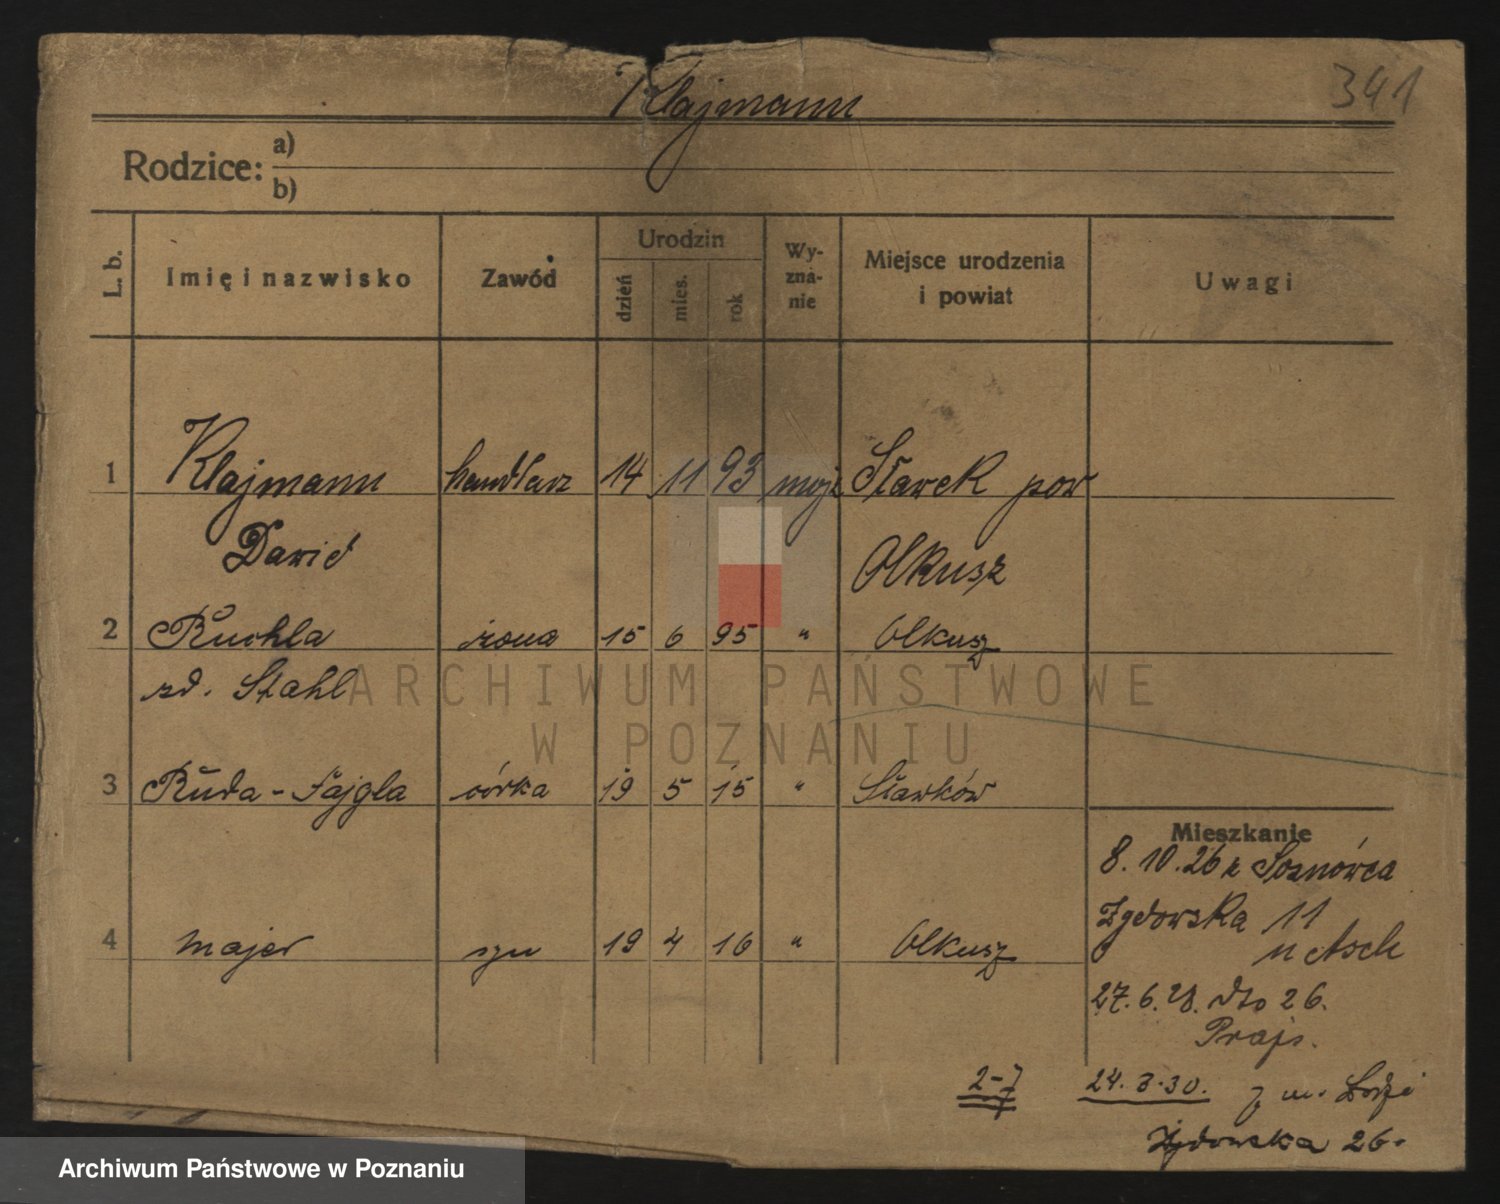 Klajmann
341
Rodzice: a)
b)
L. b.
Imię i nazwisko
Zawód
Urodzin
dzień
mies.
rok
Wy-
zna-
nie
Miejsce urodzenia
i powiat
Uwagi
1 Klajmann handlarz 14 11 93 mojż Sławek pow
Dawid Olkusz
2 Ruchla żona 15 6 95 " Olkusz
zd. Stahl
3 Ruda-Fajgla córka 19 5 15 " Sławków
4 Majer syn 19 4 16 " Olkusz
Mieszkanie
8.10.26 z Sosnówca
Żydowska 11
u Asch
27.6.28. dto 26.
Prajs.
2-7
24.3.30. z m. Łodzi
Żydowska 26.
ARCHIWUM PAŃSTWOWE
W POZNANIU
Archiwum Państwowe w Poznaniu